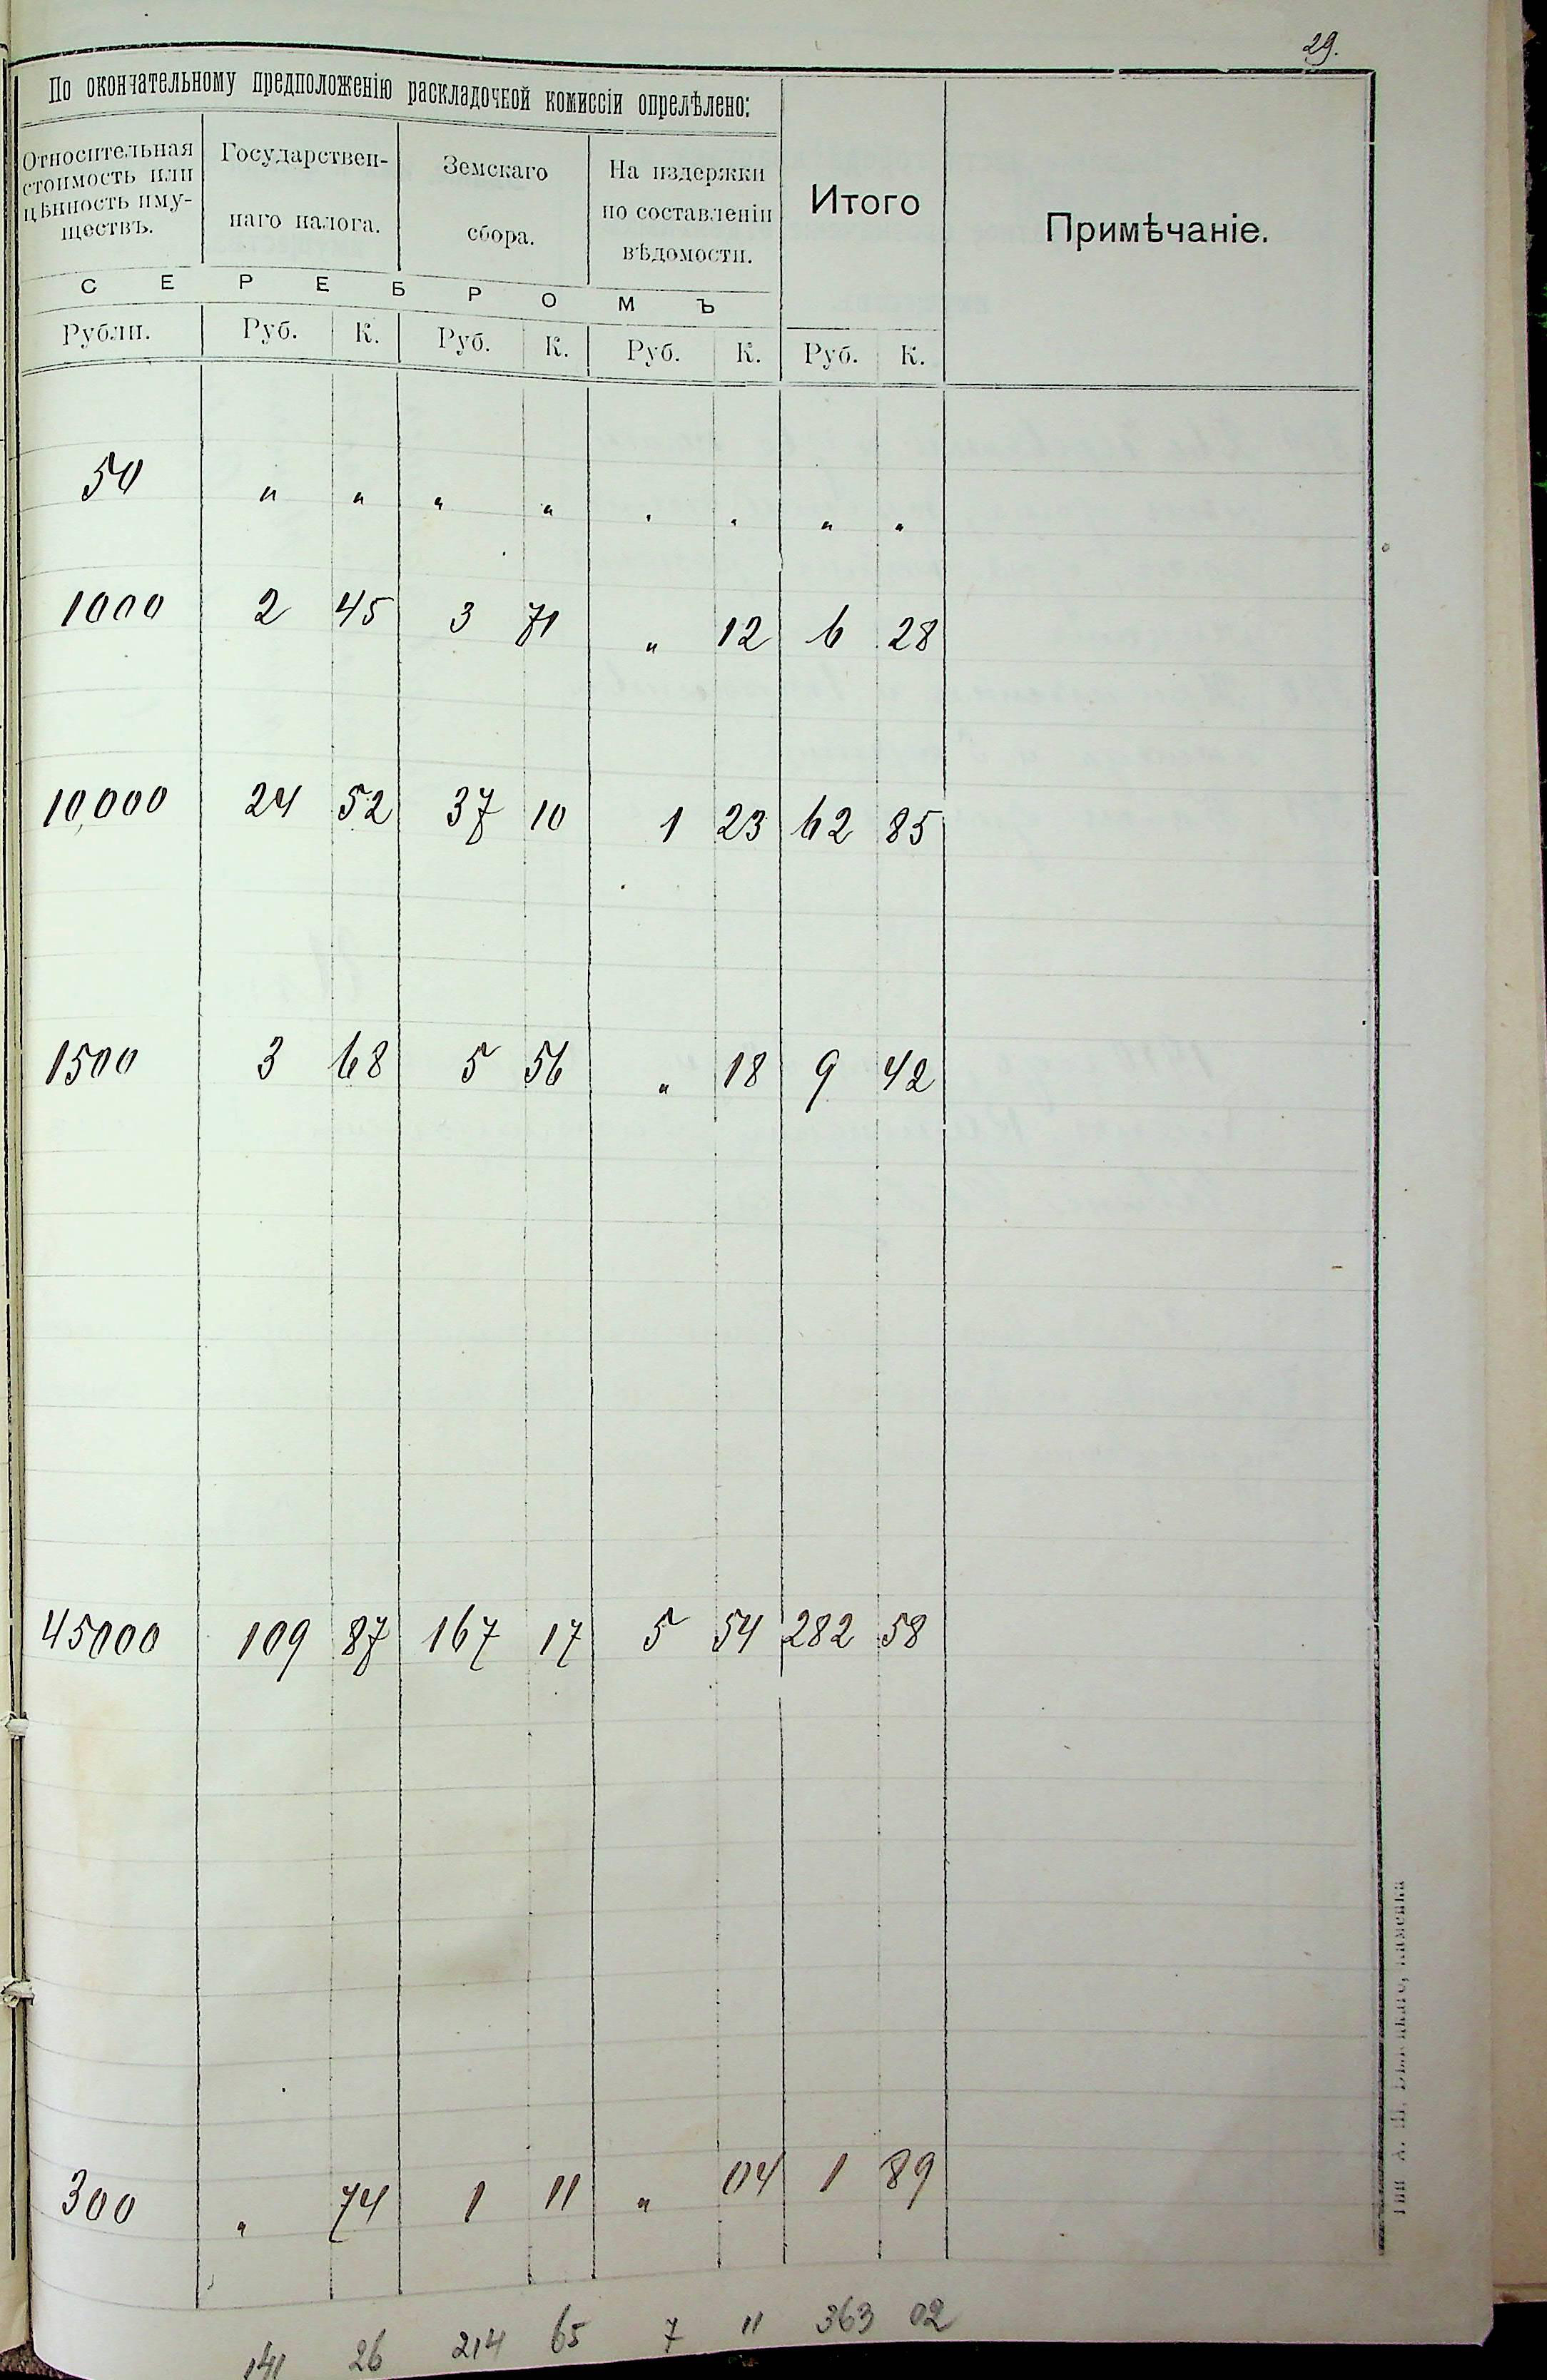 29.
По окончательному предположенію раскладочной комиссіи опрелѣлено:
Относительная стоимость или цѣнность иму- ществъ.
Государствен- наго налога.
Земскаго сбора.
На издержки по составленіи вѣдомости.
Итого
Примѣчаніе.
С Е Р Е Б Р О М Ъ
Рубли. Руб. К. Руб. К. Руб. К. Руб. К.
50 " " " " " " " "
1000 2 45 3 71 " 12 6 28
10,000 24 52 37 10 1 23 62 85
1500 3 68 5 56 " 18 9 42
45000 109 87 167 17 5 54 282 58
300 " 74 1 11 " 04 1 89
141 26 214 65 7 11 363 02